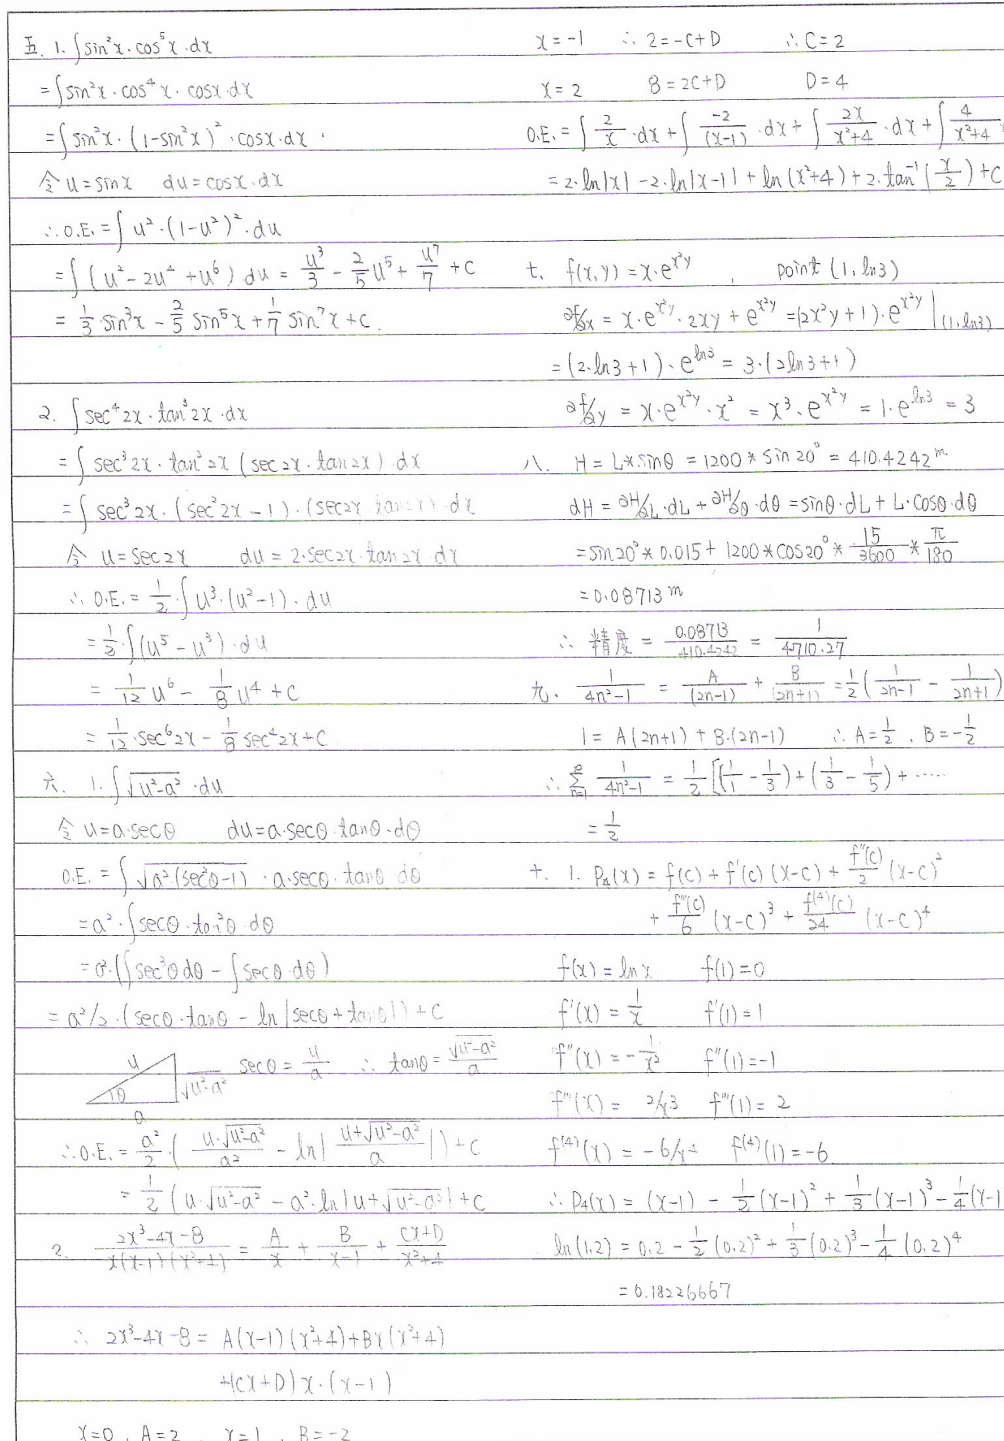 五. 1. ∫sin²x·cos⁵x·dx
= ∫sin²x·cos⁴x·cosx·dx
= ∫sin²x·(1-sin²x)²·cosx·dx
令 u=sinx du=cosx·dx
∴ O.E. = ∫u²·(1-u²)²·du
= ∫(u²-2u⁴+u⁶) du = u³/3 - 2/5 u⁵ + u⁷/7 + C
= 1/3 sin³x - 2/5 sin⁵x + 1/7 sin⁷x + C.
2. ∫sec⁴2x·tan³2x·dx
= ∫sec³2x·tan²2x (sec2x·tan2x) dx
= ∫sec³2x·(sec²2x-1)·(sec2x tan2x) dx
令 u=sec2x du=2·sec2x·tan2x dx
∴ O.E. = 1/2·∫u³·(u²-1)·du
= 1/2·∫(u⁵-u³)·du
= 1/12 u⁶ - 1/8 u⁴ + C
= 1/12·sec⁶2x - 1/8 sec⁴2x + C
六. 1. ∫√(u²-a²)·du
令 u=a·secθ du=a·secθ·tanθ·dθ
O.E. = ∫√(a²(sec²θ-1))·a·secθ·tanθ dθ
= a²·∫secθ·tan²θ dθ
= a²·(∫sec³θ dθ - ∫secθ·dθ)
= a²/2·(secθ·tanθ - ln|secθ+tanθ|) + C
u θ a √(u²-a²) secθ = u/a ∴ tanθ = √(u²-a²)/a
∴ O.E. = a²/2·( u·√(u²-a²)/a² - ln| (u+√(u²-a²))/a |) + C
= 1/2 (u·√(u²-a²) - a²·ln|u+√(u²-a²)| + C
2. (2x³-4x-8)/(x(x-1)(x²+4)) = A/x + B/(x-1) + (Cx+D)/(x²+4)
∴ 2x³-4x-8 = A(x-1)(x²+4)+Bx(x²+4)
+(Cx+D)x·(x-1)
x=0, A=2, x=1, B=-2
x=-1 ∴ 2=-C+D ∴ C=2
x=2 8=2C+D D=4
O.E. = ∫ 2/x·dx + ∫ -2/(x-1)·dx + ∫ 2x/(x²+4)·dx + ∫ 4/(x²+4)
= 2·ln|x| - 2·ln|x-1| + ln(x²+4) + 2·tan⁻¹(x/2) + C
七. f(x,y) = x·e^(x²y), point (1, ln3)
∂f/∂x = x·e^(x²y)·2xy + e^(x²y) = (2x²y+1)·e^(x²y) |(1,ln3)
= (2·ln3+1)·e^(ln3) = 3·(2ln3+1)
∂f/∂y = x·e^(x²y)·x² = x³·e^(x²y) = 1·e^(ln3) = 3
八. H = L*sinθ = 1200*sin20° = 410.4242 m
dH = ∂H/∂L·dL + ∂H/∂θ·dθ = sinθ·dL + L·cosθ·dθ
= sin20°*0.015 + 1200*cos20°* 15/3600 * π/180
= 0.08713 m
∴ 精度 = 0.08713/410.4242 = 1/4710.27
九. 1/(4n²-1) = A/(2n-1) + B/(2n+1) = 1/2(1/(2n-1) - 1/(2n+1))
1 = A(2n+1) + B·(2n-1) ∴ A=1/2, B=-1/2
∴ Σ(n=1→∞) 1/(4n²-1) = 1/2[(1/1 - 1/3)+(1/3 - 1/5)+·····
= 1/2
十. 1. P₄(x) = f(c) + f'(c)(x-c) + f''(c)/2 (x-c)²
+ f'''(c)/6 (x-c)³ + f⁽⁴⁾(c)/24 (x-c)⁴
f(x) = lnx f(1)=0
f'(x) = 1/x f'(1)=1
f''(x) = -1/x² f''(1)=-1
f'''(x) = 2/x³ f'''(1)=2
f⁽⁴⁾(x) = -6/x⁴ f⁽⁴⁾(1)=-6
∴ P₄(x) = (x-1) - 1/2(x-1)² + 1/3(x-1)³ - 1/4(x-1
ln(1.2) = 0.2 - 1/2(0.2)² + 1/3(0.2)³ - 1/4(0.2)⁴
= 0.18226667